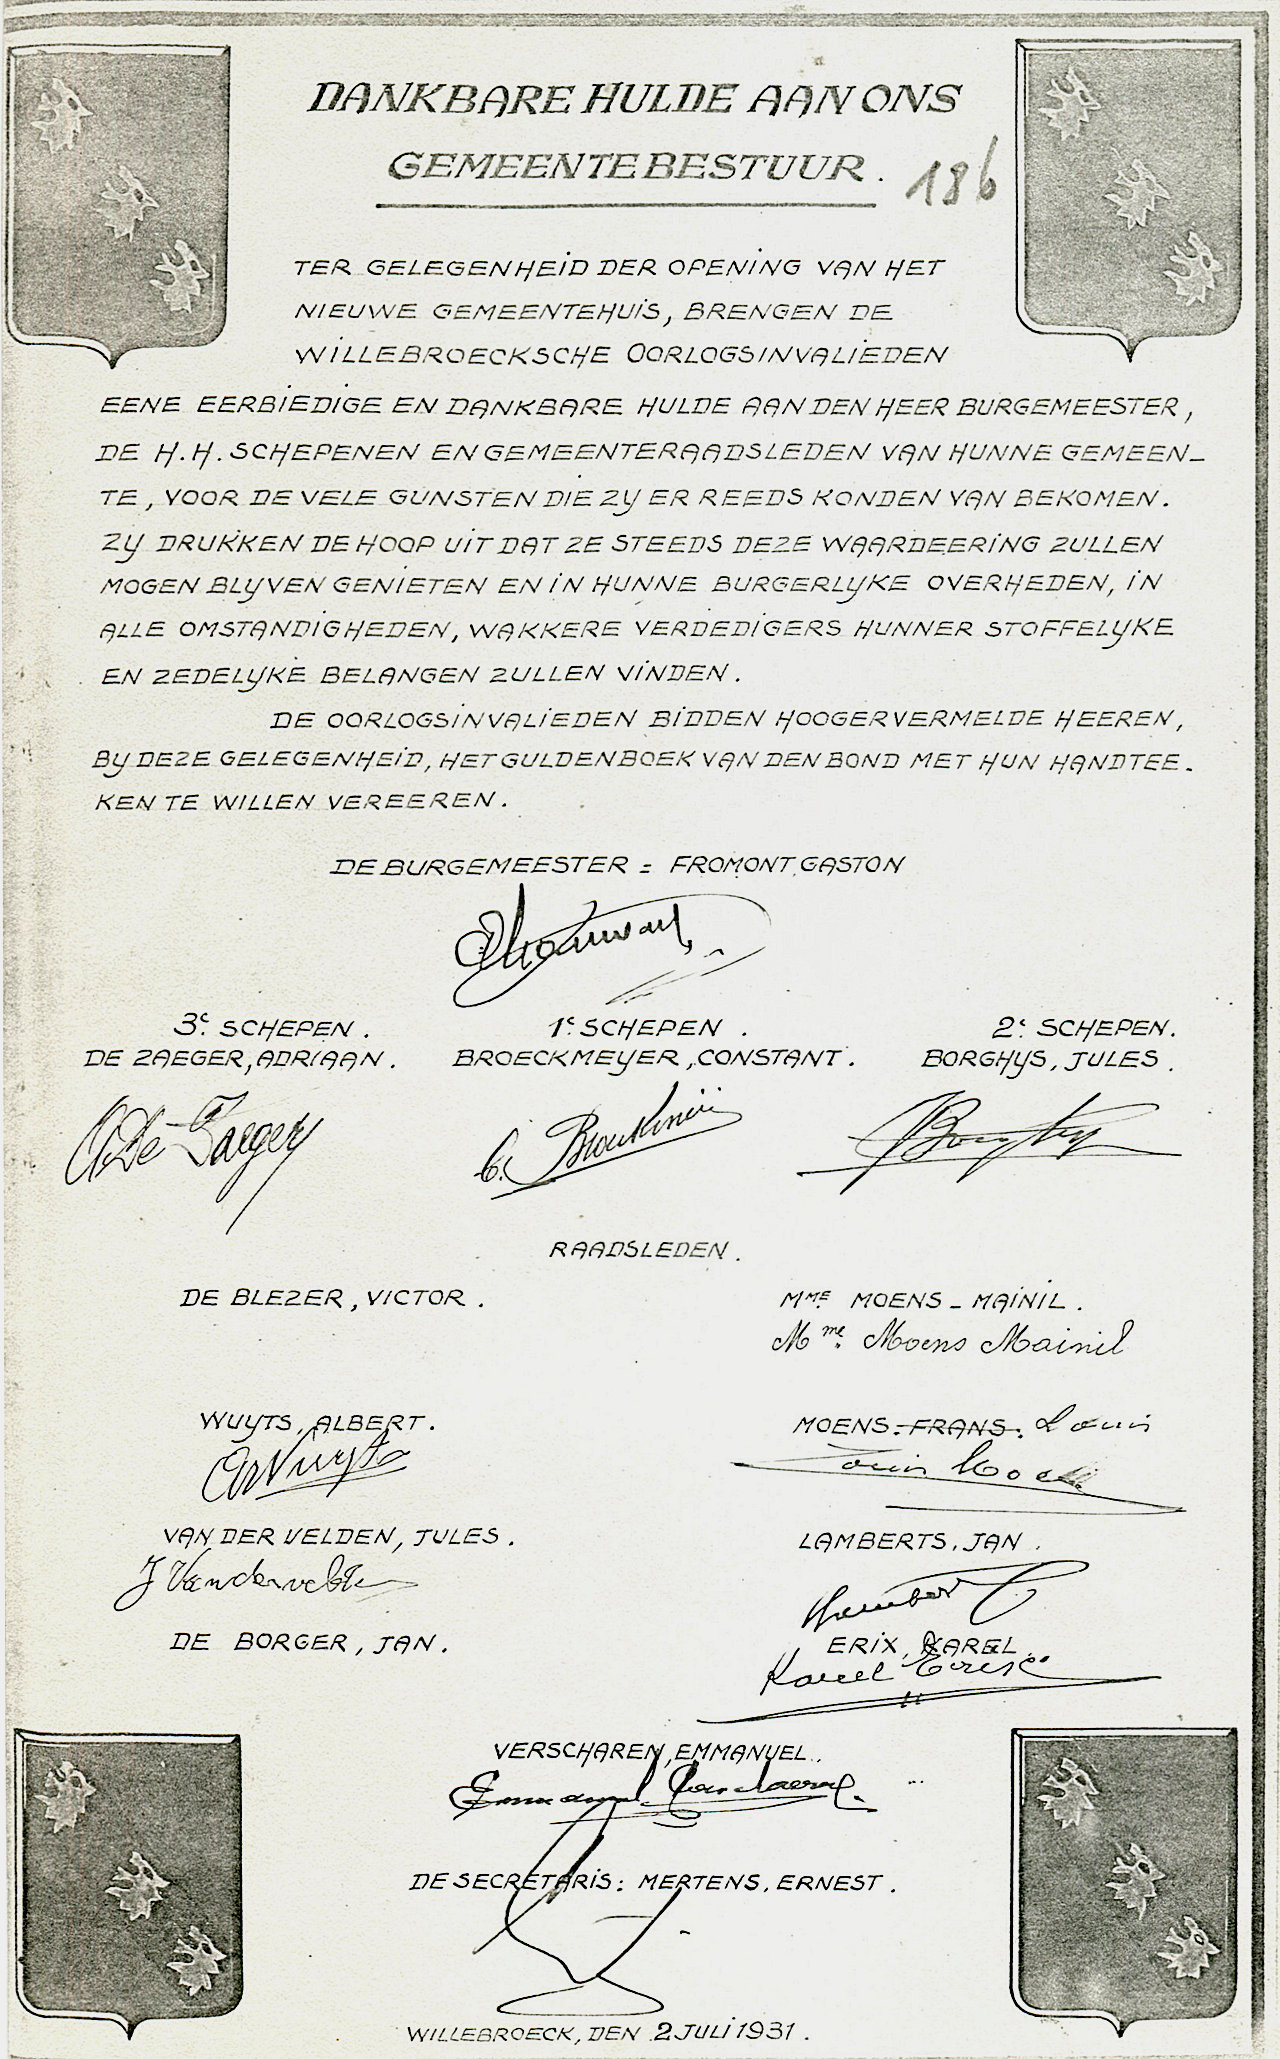 DANKBARE HULDE AAN ONS
GEMEENTEBESTUUR. 186
TER GELEGENHEID DER OPENING VAN HET
NIEUWE GEMEENTEHUIS, BRENGEN DE
WILLEBROECKSCHE OORLOGSINVALIEDEN
EENE EERBIEDIGE EN DANKBARE HULDE AAN DEN HEER BURGEMEESTER,
DE H.H. SCHEPENEN EN GEMEENTERAADSLEDEN VAN HUNNE GEMEEN-
TE, VOOR DE VELE GUNSTEN DIE ZY ER REEDS KONDEN VAN BEKOMEN.
ZY DRUKKEN DE HOOP UIT DAT ZE STEEDS DEZE WAARDEERING ZULLEN
MOGEN BLYVEN GENIETEN EN IN HUNNE BURGERLYKE OVERHEDEN, IN
ALLE OMSTANDIGHEDEN, WAKKERE VERDEDIGERS HUNNER STOFFELYKE
EN ZEDELYKE BELANGEN ZULLEN VINDEN.
DE OORLOGSINVALIEDEN BIDDEN HOOGERVERMELDE HEEREN,
BY DEZE GELEGENHEID, HET GULDENBOEK VAN DEN BOND MET HUN HANDTEE-
KEN TE WILLEN VEREEREN.
DE BURGEMEESTER = FROMONT, GASTON
3e. SCHEPEN. 1e. SCHEPEN. 2e. SCHEPEN.
DE ZAEGER, ADRIAAN. BROECKMEYER, CONSTANT. BORGHYS, JULES.
A De Zaeger
RAADSLEDEN.
DE BLEZER, VICTOR. MME MOENS - MAINIL.
Mme. Moens Mainil
WUYTS, ALBERT. MOENS. FRANS. Louis
A Wuyts Louis
VAN DER VELDEN, JULES. LAMBERTS, JAN.
J Vandervelden
DE BORGER, JAN. ERIX, KAREL.
Karel Erix
VERSCHAREN, EMMANUEL.
DE SECRETARIS: MERTENS, ERNEST.
WILLEBROECK, DEN 2 JULI 1931.